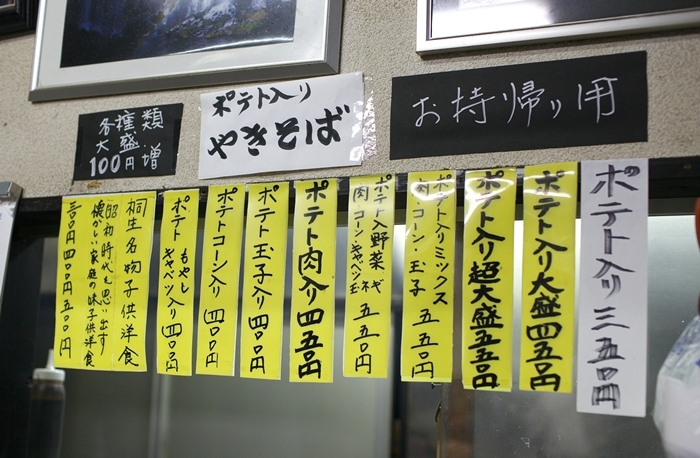 各種類
大盛
100円増
ポテト入り
やきそば
お持帰り用
ポテト入り三五〇円
ポテト入り大盛四五〇円
ポテト入り超大盛五五〇円
ポテト入りミックス
肉・コーン・玉子 五五〇円
ポテト入野菜
肉・コーン・キャベツ・玉ネギ 五五〇円
ポテト肉入り四五〇円
ポテト玉子入り四〇〇円
ポテトコーン入り四〇〇円
ポテト もやし
キャベツ入り四〇〇円
桐生名物子供洋食
昭和時代を思い出す
懐かしい家庭の味子供洋食
三〇〇円四〇〇円五〇〇円